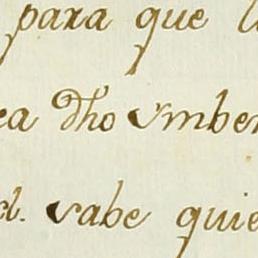 para que l
ea dho vmber
cl. sabe quie